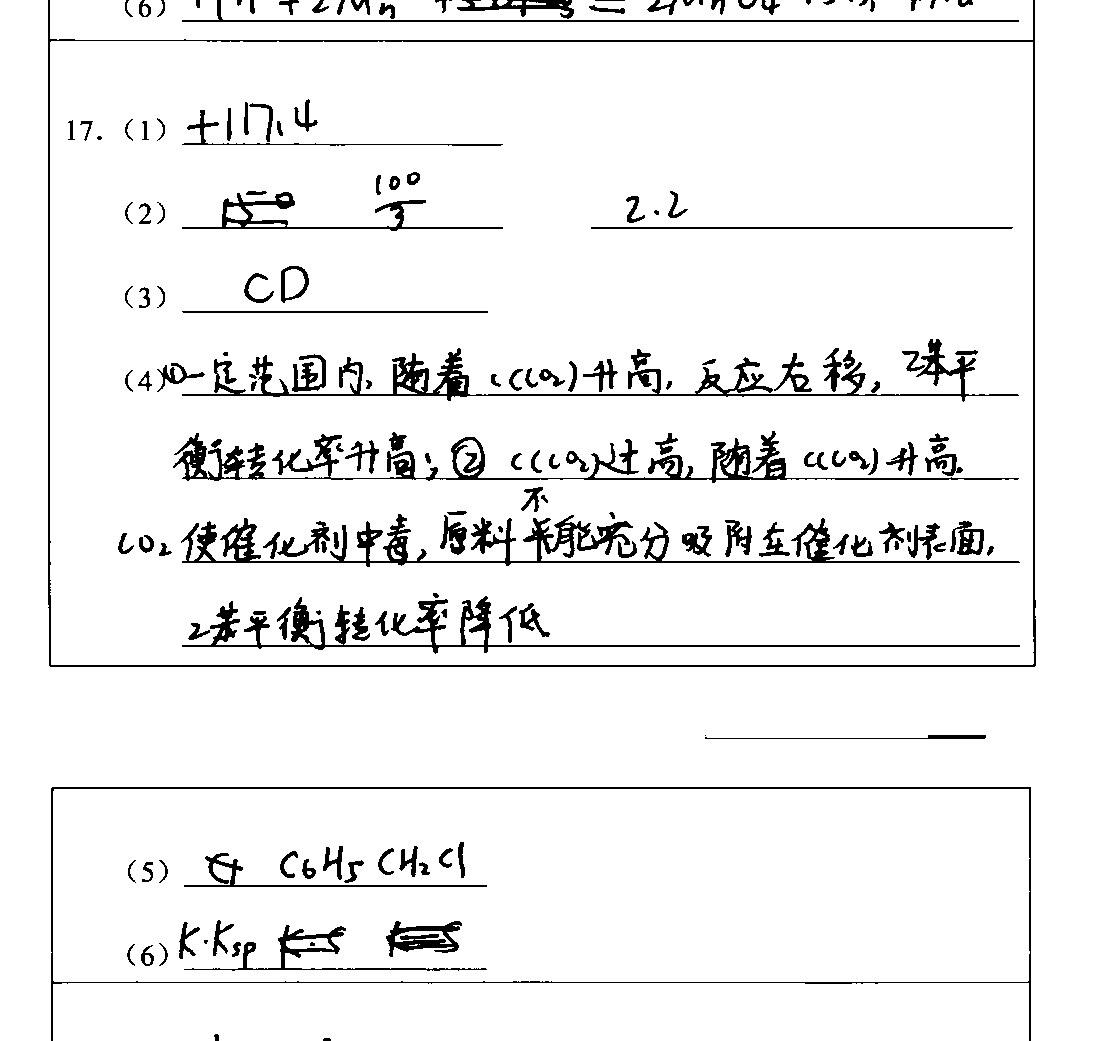 (6)
17. (1) +117.4
(2) 100/3 2.2
(3) CD
(4) ①一定范围内,随着c(CO₂)升高,反应右移,乙苯平
衡转化率升高;② c(CO₂)过高,随着c(CO₂)升高.
CO₂使催化剂中毒,原料不能充分吸附在催化剂表面,
乙苯平衡转化率降低
(5) C₆H₅CH₂Cl
(6) K·Ksp